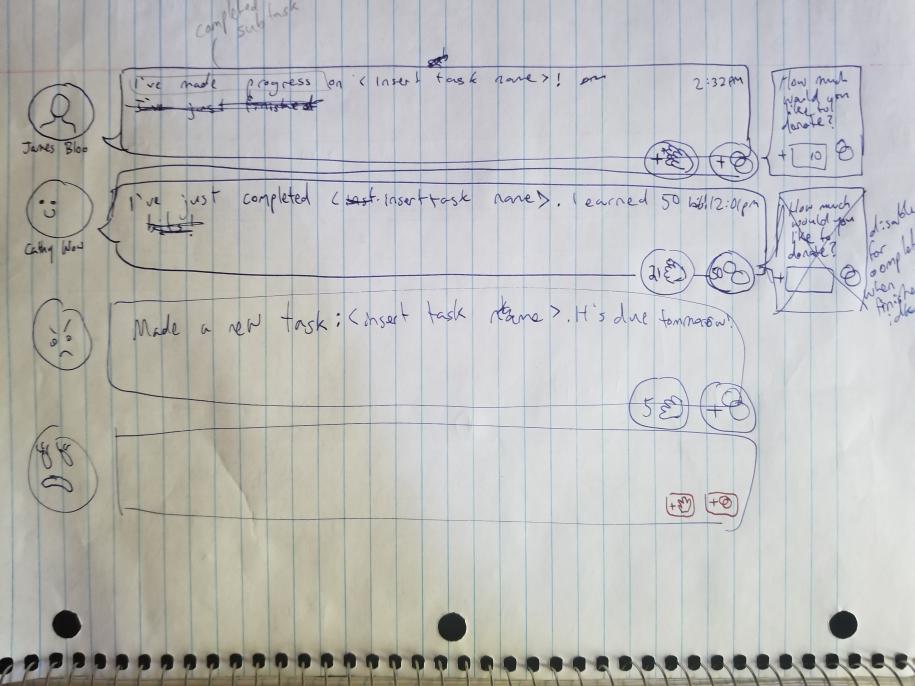 completed
subtask
I've made progress on <insert task name>!
2:32pm
I've just finished
James Bloo
+
+
How much
would you
like to
donate?
+ 10
I've just completed < insert task name>. I earned 50 12:01pm
Cathy Wow
21
50
How much
would you
like to
donate?
+
disable
for
complete
when
finished
idk
Made a new task: <insert task name>. It's due tommorow!
5
+
+
+